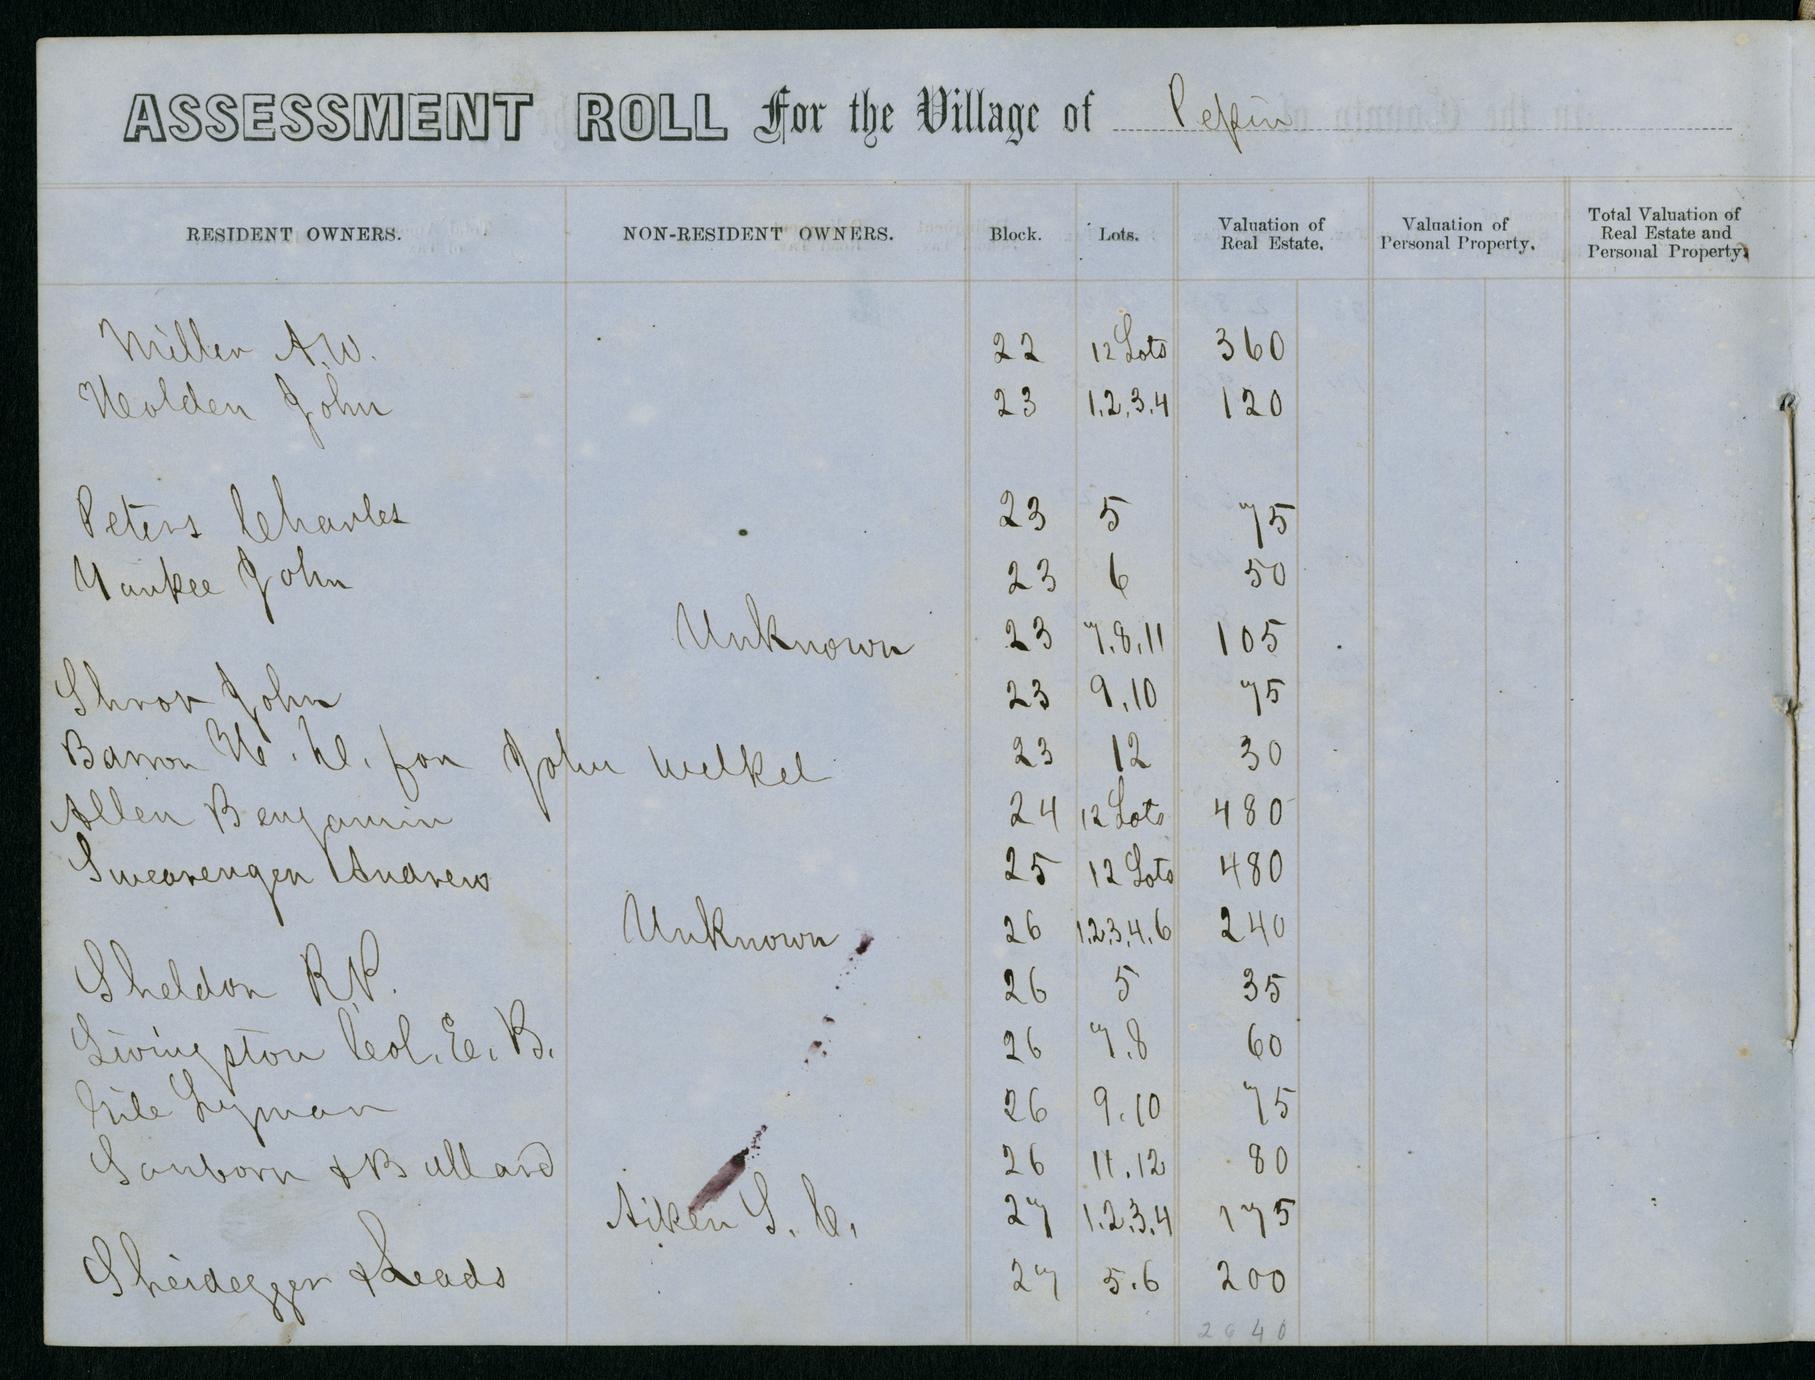 ASSESSMENT ROLL For the Village of Pepin
RESIDENT OWNERS. NON-RESIDENT OWNERS. Block. Lots. Valuation of Real Estate. Valuation of Personal Property. Total Valuation of Real Estate and Personal Property.
Miller A.W. 22 12 Lots 360
Holden John 23 1.2.3.4 120
Peters Charles 23 5 75
Yankee John 23 6 50
Unknown 23 7.8.11 105
John 23 9.10 75
Barron H. for John Welkel 23 12 30
Allen Benjamin 24 12 Lots 480
Swearengen Andrew 25 12 Lots 480
Unknown 26 1.2.3.4.6 240
Sheldon R.P. 26 5 35
Livingston Col. E. B. 26 7.8 60
Lyman 26 9.10 75
Sanborn & Bullard 26 11.12 80
Aiken S. C. 27 1.2.3.4 175
Sheidegger & Leads 27 5.6 200
2640